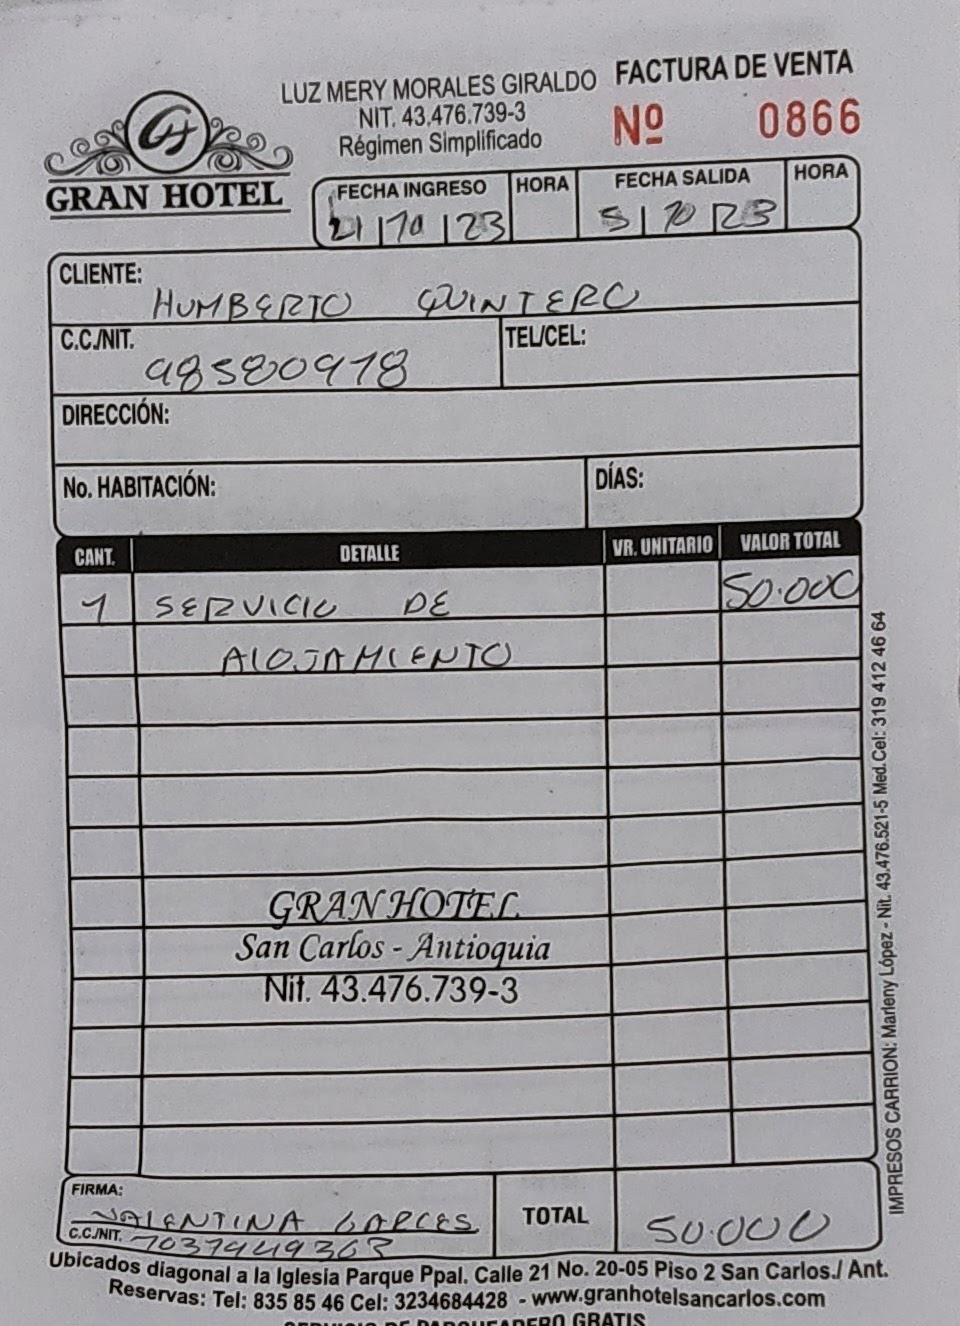 LUZ MERY MORALES GIRALDO
NIT. 43.476.739-3
Régimen Simplificado
FACTURA DE VENTA
Nº 0866
GH
GRAN HOTEL
FECHA INGRESO HORA FECHA SALIDA HORA
/10/23 5/10/23
CLIENTE: HUMBERTO QUINTERO
C.C./NIT. 98580978 TEL/CEL:
DIRECCIÓN:
No. HABITACIÓN: DÍAS:
CANT. DETALLE VR. UNITARIO VALOR TOTAL
1 SERVICIO DE 50.000
ALOJAMIENTO
GRAN HOTEL
San Carlos - Antioquia
Nit. 43.476.739-3
FIRMA: VALENTINA GARCES
C.C./NIT. 1037949363
TOTAL 50.000
Ubicados diagonal a la Iglesia Parque Ppal. Calle 21 No. 20-05 Piso 2 San Carlos./ Ant.
Reservas: Tel: 835 85 46 Cel: 3234684428 - www.granhotelsancarlos.com
SERVICIO DE PARQUEADERO GRATIS
IMPRESOS CARRION: Marleny López - Nit. 43.476.521-5 Med.Cel: 319 412 46 64